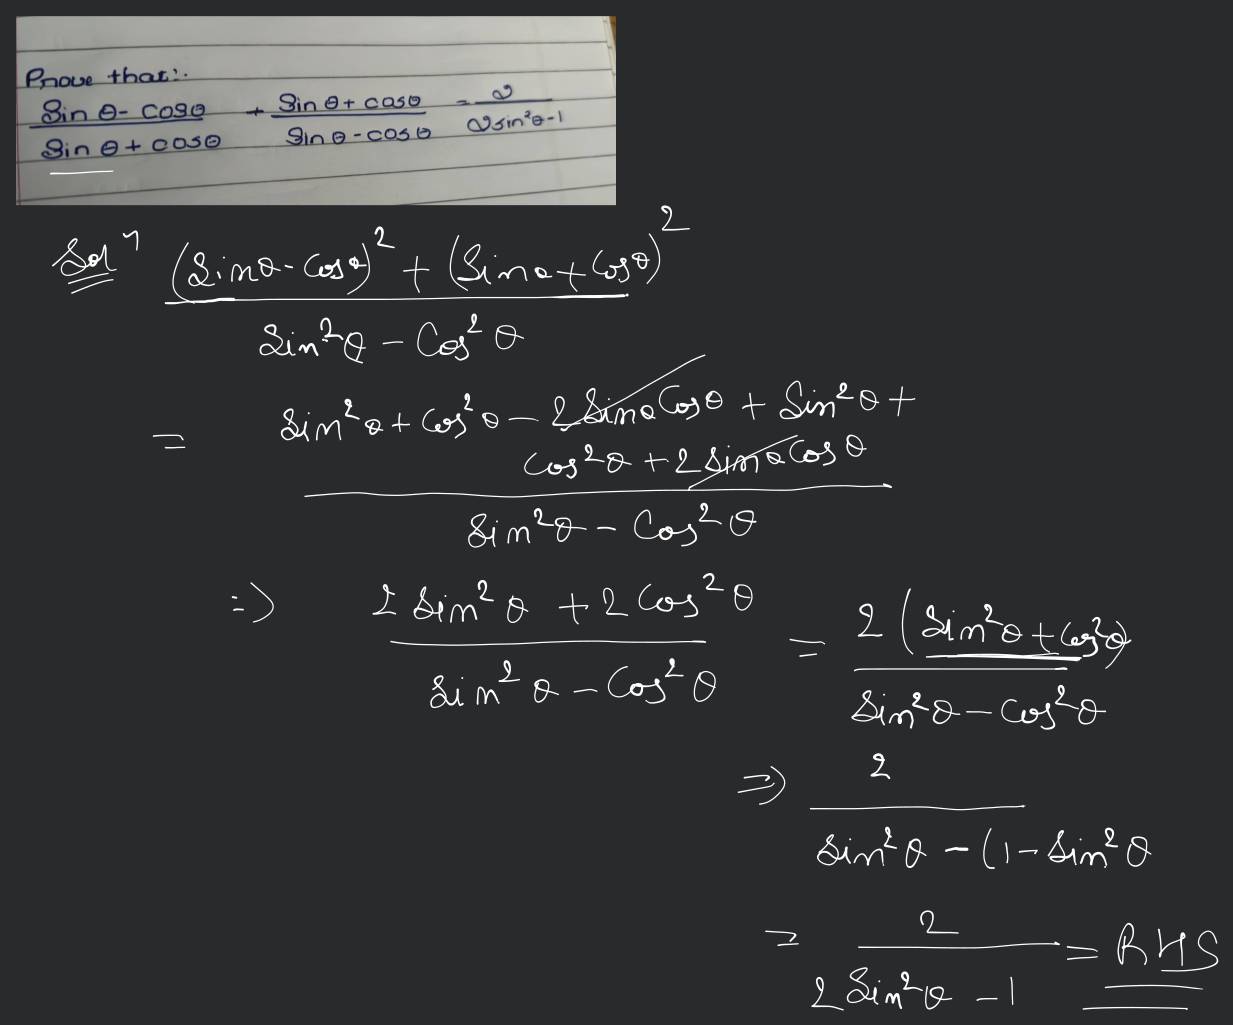 Prove that:-
Sin θ - cosθ / Sin θ + cosθ + Sin θ + cosθ / Sin θ - cosθ = 2 / 2sin²θ-1
Solⁿ (Sinθ - Cosθ)² + (Sinθ + Cosθ)²
Sin²θ - Cos²θ
= Sin²θ + Cos²θ - 2 Sinθ Cosθ + Sin²θ +
Cos²θ + 2 Sinθ Cosθ
Sin²θ - Cos²θ
=> 2 Sin²θ + 2 Cos²θ / Sin²θ - Cos²θ = 2 (Sin²θ + Cos²θ) / Sin²θ - Cos²θ
=> 2
Sin²θ - (1 - Sin²θ
= 2 / 2 Sin²θ - 1 = RHS